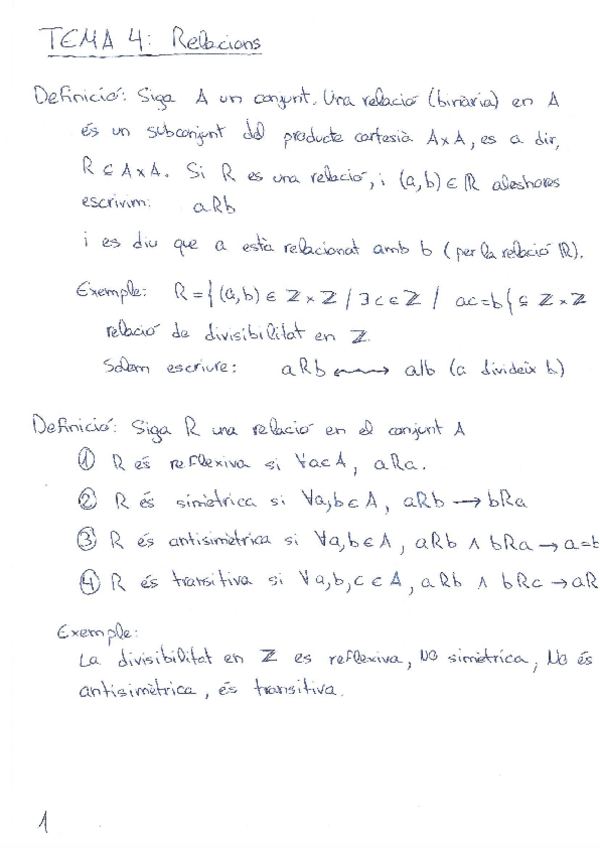 TEMA 4: Relacions
Definició: Siga A un conjunt. Una relació (binària) en A
és un subconjunt del producte cartesià A×A, es a dir,
R ⊆ A×A. Si R es una relació, i (a,b) ∈ R aleshores
escrivim: aRb
i es diu que a està relacionat amb b (per la relació R).
Exemple: R = { (a,b) ∈ ℤ×ℤ / ∃c∈ℤ / ac=b } ⊆ ℤ×ℤ
relació de divisibilitat en ℤ.
Solem escriure: aRb ⟷ a|b (a divideix b)
Definició: Siga R una relació en el conjunt A
① R és reflexiva si ∀a∈A, aRa.
② R és simètrica si ∀a,b∈A, aRb → bRa
③ R és antisimètrica si ∀a,b∈A, aRb ∧ bRa → a=b
④ R és transitiva si ∀a,b,c∈A, aRb ∧ bRc → aR
Exemple:
La divisibilitat en ℤ es reflexiva, No simètrica, No és
antisimètrica, és transitiva.
1